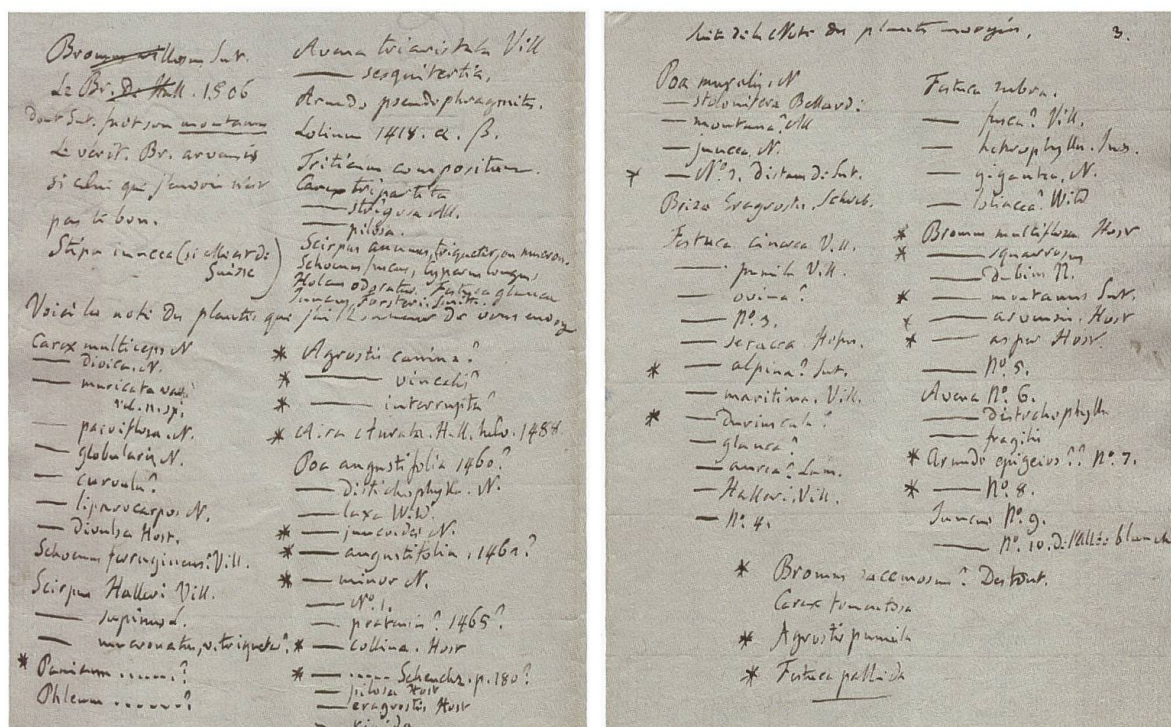 Bromus villosus, Sut.
Le Br. De Hall. 1506
dont Sut. fait son montanus
Le vérit. Br. arvensis
si celui que j'envoie n'est
pas le bon.
Stipa juncea (si elle est de
Suisse)
Avena triaristata Vill
— sesquitertia,
Arundo pseudophragmites.
Lolium 1418. α. β.
Triticum compositum.
Carex tripartita
— strigosa All.
— pilosa.
Scirpus annuus, triqueter, mucron.
Schoenus fuscus, Cyperus longus,
Holcus odoratus. Festuca glauca
Juncus Forsteri. Smith.
Voici la note des plantes que j'ai l'honneur de vous envoyer
Carex multiceps N
— divica. N.
— muricata
n. sp.
— parviflora. N.
— globularis N.
— curvula?
— lipnocarpos N.
— Divulsa Host.
Schoenus ferrugineus? Vill.
Scirpus Halleri Vill.
— supinus L.
— mucronatus, v. triqueter?
* Panicum ......?
Phleum ......?
* Agrostis canina?
* — vinealis?
* — interrupta?
* Aira Hall. helv. 1488
Poa angustifolia 1460?
— distichophylla. N.
— laxa Wild.
* — juncoides N.
* — angustifolia. 1461?
* — minor N.
— No. 1.
— pratensis? 1465?
* — collina. Host
* — ..... Scheuchz. p. 180?
— pilosa Host
— eragrostis Host
— rigida
Suite de la Note des plantes envoyées. 3.
Poa muralis, N
— stolonifera Bellardi:
— montana? All
— juncea, N.
— No. 2. distans di: Sut.
Briza Eragrostis. Schreb.
Festuca cinerea Vill.
— pumila Vill.
— ovina?
— No. 3.
— Hopp.
* — alpina? Sut.
— maritima. Vill.
* — duriuscula?
— glauca?
— aurea? Lam.
— Halleri. Vill.
— No. 4.
Festuca rubra.
— fusca? Vill.
— heterophylla.
— gigantea, N.
— loliacea? Wild
* Bromus multiflorus Host
* — squarrosus
— dubius N.
* — montanus Sut.
* — arvensis. Host
* — asper Host
— No. 5.
Avena No. 6.
— distichophylla
— fragilis
* Arundo epigeios?? No. 7.
* — No. 8.
Juncus No. 9.
— No. 10. De l'allée blanche
* Bromus racemosus? Desfont.
Carex tomentosa
* Agrostis pumila
* Festuca pallida